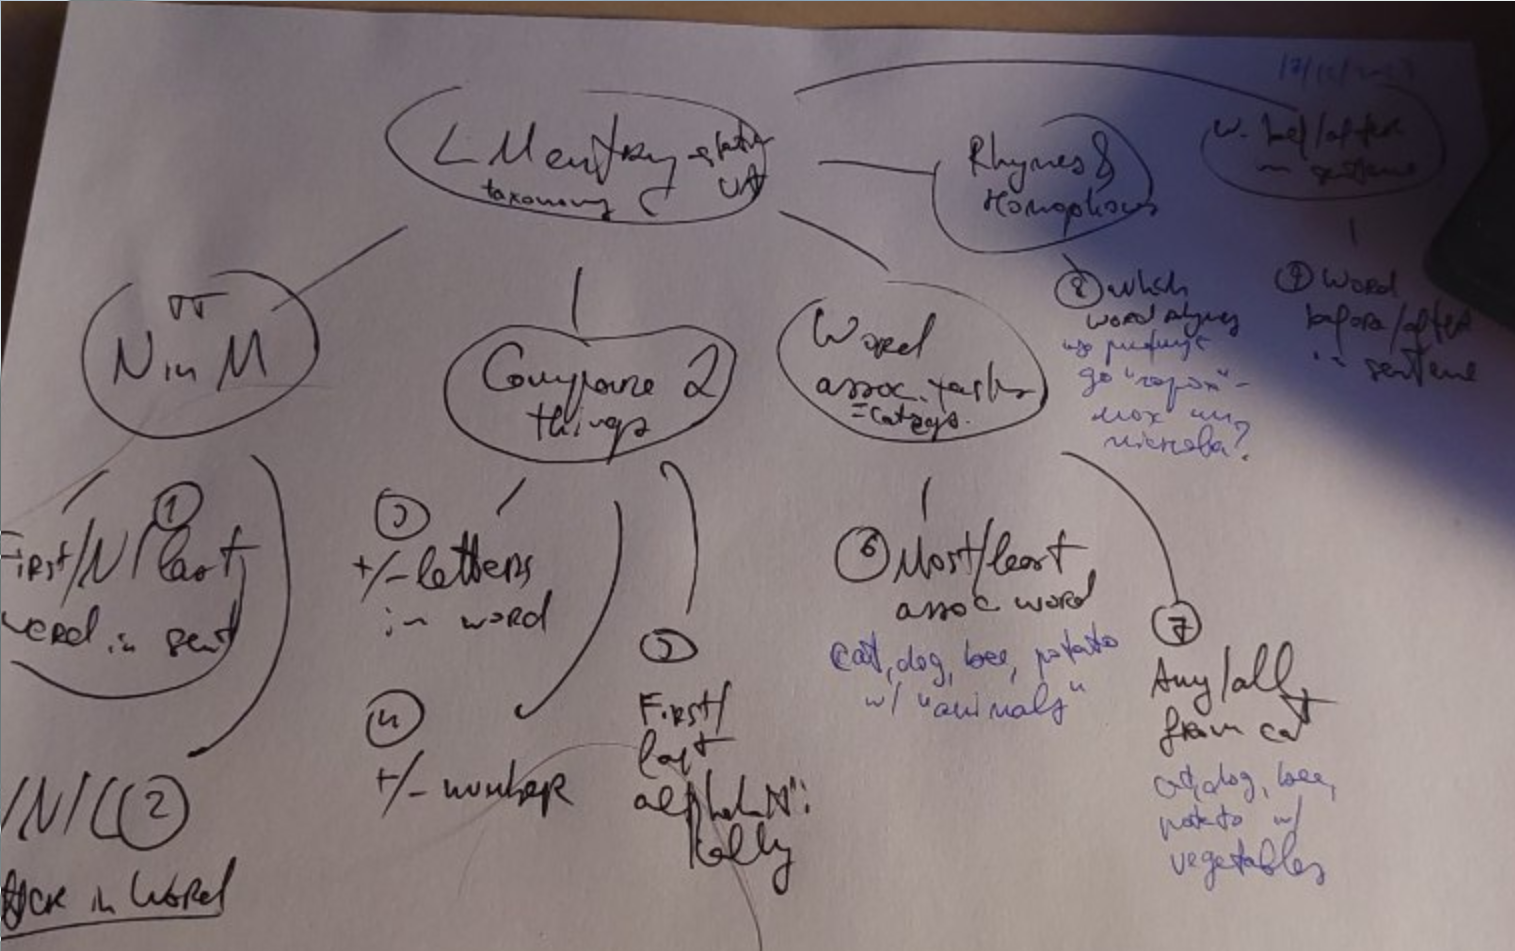 LMentry-static
taxonomy UA
Rhymes &
Homophones
w. bef/after
in sentence
N in M
Compare 2
things
Word
assoc. tasks
= categs.
8 Which
word rhymes
до "горох" -
мох чи
9 Word
before/after
in sentence
1
First/N/last
word in sent
/N/L 2
in word
3
+/- letters
in word
4
+/- number
5
First/
last
alphabeti
cally
6 Most/least
assoc word
cat, dog, bee, potato
w/ "animals"
7
Any/all
from cat
cat, dog, bee,
potato w/
vegetables